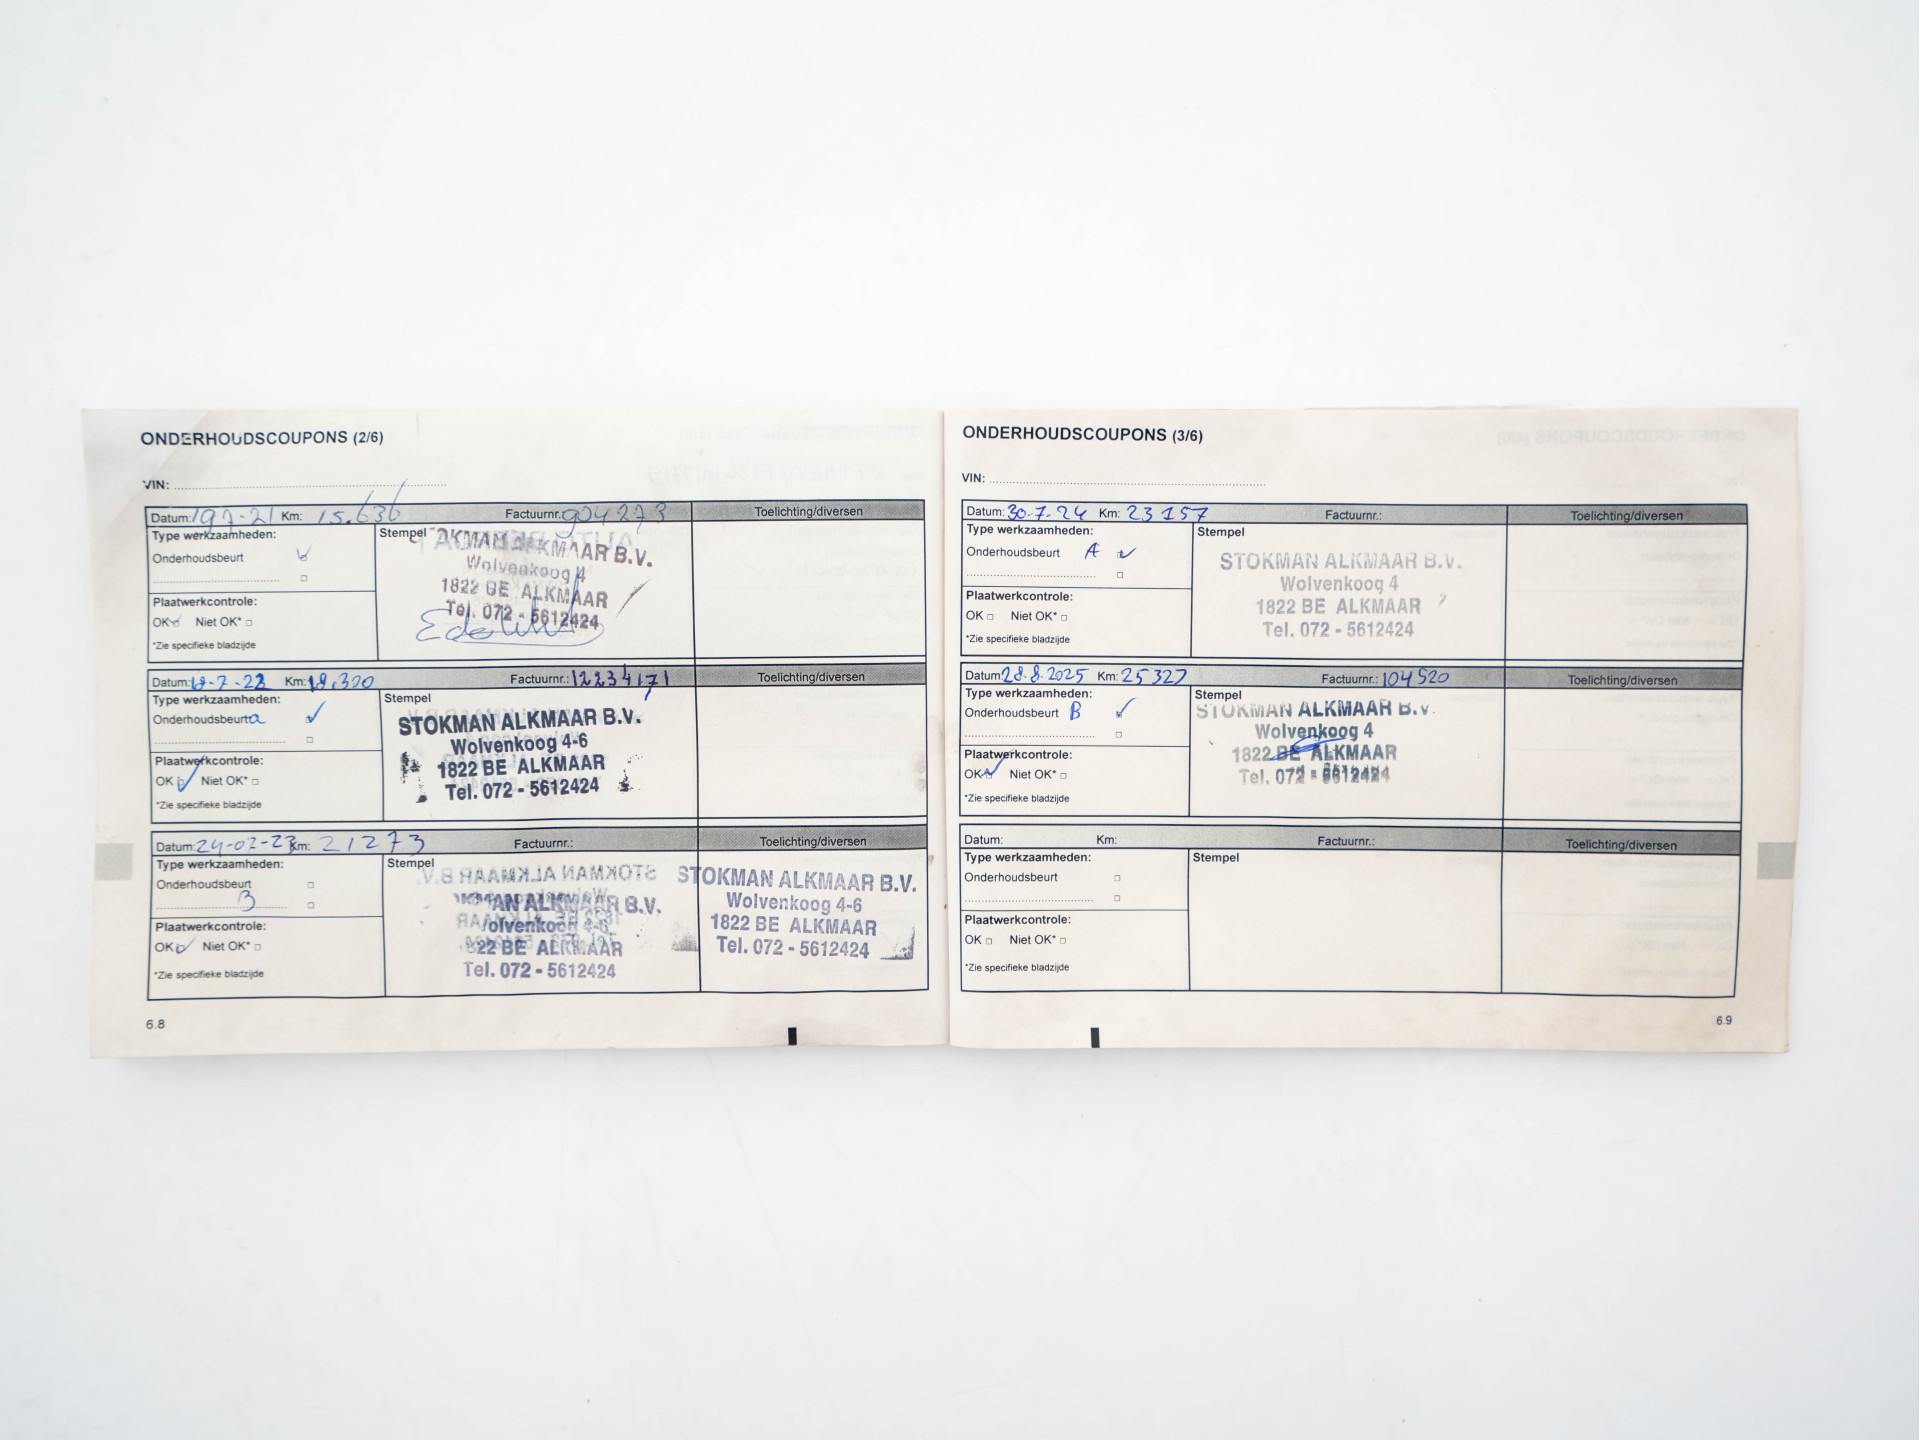 ONDERHOUDSCOUPONS (2/6)
VIN:
Datum: 19 7-21 Km: 15.636 Factuurnr.: 904273 Toelichting/diversen
Type werkzaamheden:
Stempel
Onderhoudsbeurt
ALKMAAR B.V.
Wolvenkoog 4
1822 BE ALKMAAR
Tel. 072 - 5612424
Plaatwerkcontrole:
OK Niet OK*
*Zie specifieke bladzijde
Datum: 18-7-22 Km: 18.320 Factuurnr.: 12234171 Toelichting/diversen
Type werkzaamheden:
Stempel
Onderhoudsbeurt a
STOKMAN ALKMAAR B.V.
Wolvenkoog 4-6
1822 BE ALKMAAR
Tel. 072 - 5612424
Plaatwerkcontrole:
OK Niet OK*
*Zie specifieke bladzijde
Datum: 24-07-23 Km: 21273 Factuurnr.: Toelichting/diversen
Type werkzaamheden:
Stempel
Onderhoudsbeurt
B
STOKMAN ALKMAAR B.V.
MAN ALKMAAR B.V.
olvenkoog 4-6
22 BE ALKMAAR
Tel. 072 - 5612424
STOKMAN ALKMAAR B.V.
Wolvenkoog 4-6
1822 BE ALKMAAR
Tel. 072 - 5612424
Plaatwerkcontrole:
OK Niet OK*
*Zie specifieke bladzijde
6.8
ONDERHOUDSCOUPONS (3/6)
VIN:
Datum: 30-7-24 Km: 23157 Factuurnr.: Toelichting/diversen
Type werkzaamheden:
Stempel
Onderhoudsbeurt A
STOKMAN ALKMAAR B.V.
Wolvenkoog 4
1822 BE ALKMAAR
Tel. 072 - 5612424
Plaatwerkcontrole:
OK Niet OK*
*Zie specifieke bladzijde
Datum: 28.8.2025 Km: 25327 Factuurnr.: 104520 Toelichting/diversen
Type werkzaamheden:
Stempel
Onderhoudsbeurt B
STOKMAN ALKMAAR B.V.
Wolvenkoog 4
1822 BE ALKMAAR
Tel. 072 - 5612424
Plaatwerkcontrole:
OK Niet OK*
*Zie specifieke bladzijde
Datum: Km: Factuurnr.: Toelichting/diversen
Type werkzaamheden:
Stempel
Onderhoudsbeurt
Plaatwerkcontrole:
OK Niet OK*
*Zie specifieke bladzijde
6.9